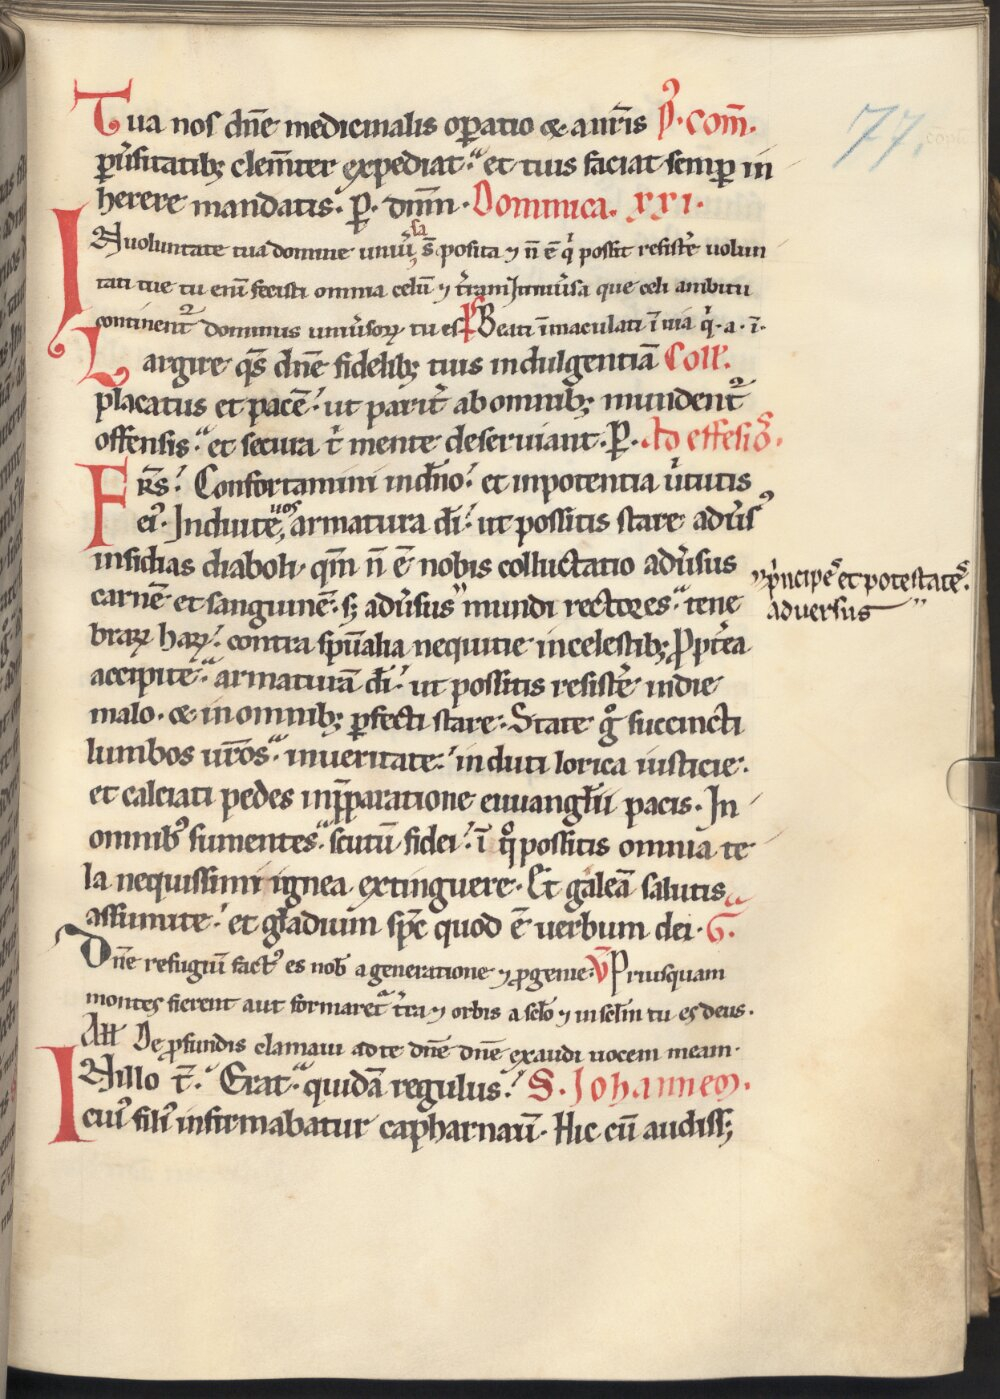 Tua nos dn̄e medicinalis oꝑatio & aur̄ris P̉·com̄.
ꝑuͥsitatibꝫ clem̄ter expediat· et tuis faciat semꝑ in
herere mandatis· P̱· dn̄m· Dominica. xxi.
IN uoluntate tua domine uniu̓sa s̄ posita ⁊ n̄ ē qͥ possit resist̓e uolun
tati tue tu enī fecisti omnia celū ⁊ t̓ram ⁊ uniu̓sa que celi ambitu
continent᷑ dominus uniu̓soꝝ tu es Ps Beati īmaculati ī uia q̓·a·ī·
Largire qs̄ dn̄e fidelibꝫ tuis indulgentiā Coll̓.
placatus et pacē· ut parit̓ ab omnibꝫ mundent᷑
offensis· et secura t̓ mente deseruiant· P̱· Ad effesios.
FRs̄· Confortamini in dn̄o· et in potentia u̓tutis
ei᷒· Induite uos armatura dī· ut possitis stare adu̓s᷒
insidias diaboli· qm̄ n̄ ē nobis colluctatio adu̓sus
carnē et sanguinē· sꝫ adu̓sus" mundi rectores· tene
braꝝ haꝝ· contra spūalia nequitie in celestibꝫ Ꝓpt̓ea
accipite· armaturā dī· ut possitis resist̓e in die
malo· & in omnibꝫ ꝑfecti stare· State g̊ succincti
lumbos ur̄os· in ueritate· induti lorica iusticie·
et calciati pedes in p̄paratione euuanglii pacis· In
omnib᷒ sumentes· scutū fidei· ī q̊ possitis omnia te
la nequissimi ignea extinguere· Et galeā salutis
assumite· et gladium spc̄ quod ē uerbum dei· G̅.
Dn̄e refugiū fact᷒ es nob̄ a generatione ⁊ ꝓgenie· V̄ Priusquam
montes fierent aut formaret᷑ t̓ra ⁊ orbis a sclo ⁊ in sclm tu es deus·
All̄ De ꝓfundis clamaui ad te dn̄e dn̄e exaudi uocem meam·
IN illo t̄· Erat· quidā regulus· S. Johannem.
cui᷒ fili᷒ infirmabatur capharnaū· Hic cū audissꝫ
77.
⁊ p̓ncipes et potestates·
aduersus "